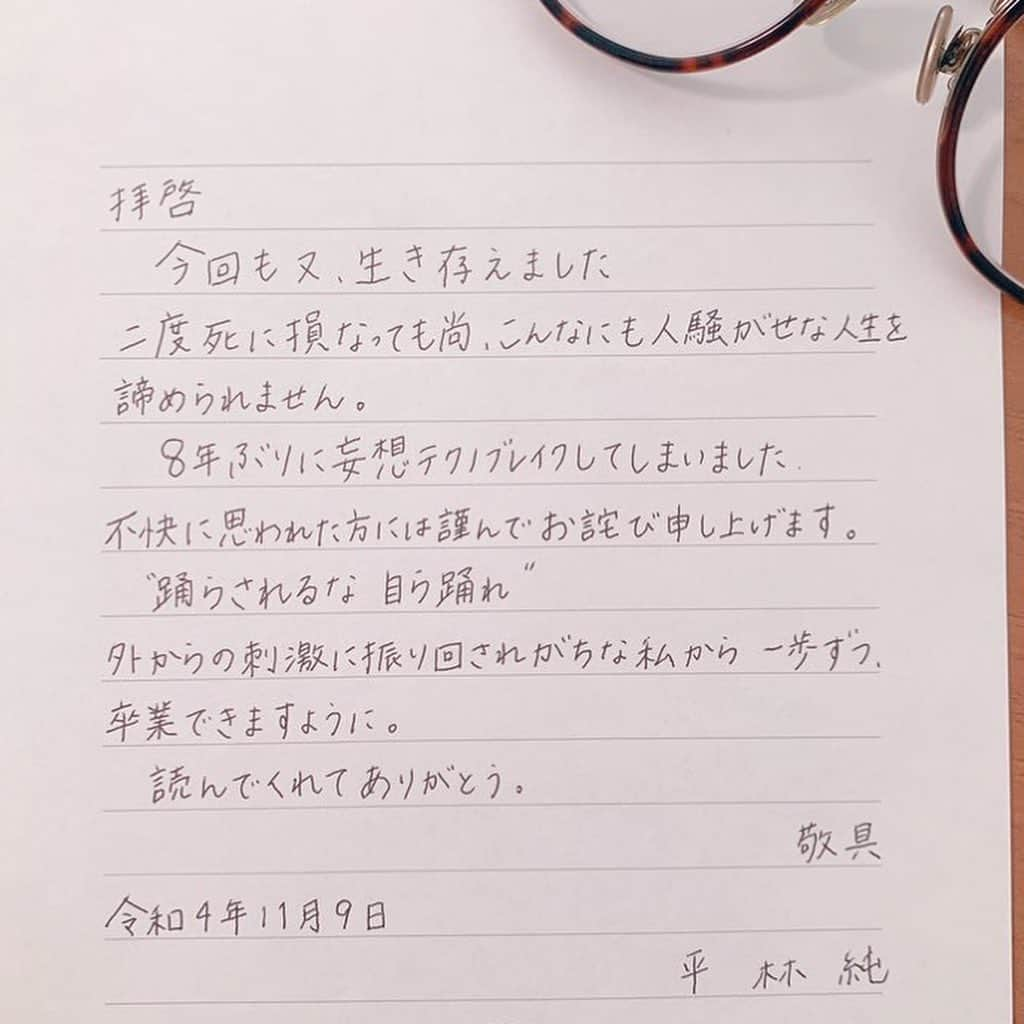 拝啓
今回も又、生き存えました
二度死に損なっても尚、こんなにも人騒がせな人生を
諦められません。
8年ぶりに妄想テクノブレイクしてしまいました.
不快に思われた方には謹んでお詫び申し上げます。
"踊らされるな 自ら踊れ"
外からの刺激に振り回されがちな私から一歩ずつ、
卒業できますように。
読んでくれてありがとう。
敬具
令和4年11月9日
平 林 純